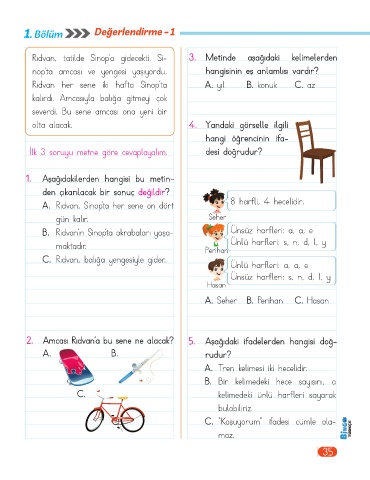 1. Bölüm Değerlendirme - 1
Rıdvan, tatilde Sinop'a gidecekti. Si-
nop'ta amcası ve yengesi yaşıyordu.
Rıdvan her sene iki hafta Sinop'ta
kalırdı. Amcasıyla balığa gitmeyi çok
severdi. Bu sene amcası ona yeni bir
olta alacak.
İlk 3 soruyu metne göre cevaplayalım.
1. Aşağıdakilerden hangisi bu metin-
den çıkarılacak bir sonuç değildir?
A. Rıdvan, Sinop'ta her sene on dört
gün kalır.
B. Rıdvan'ın Sinop'ta akrabaları yaşa-
maktadır.
C. Rıdvan, balığa yengesiyle gider.
2. Amcası Rıdvan'a bu sene ne alacak?
A. B.
C.
3. Metinde aşağıdaki kelimelerden
hangisinin eş anlamlısı vardır?
A. yıl B. konuk C. az
4. Yandaki görselle ilgili
hangi öğrencinin ifa-
desi doğrudur?
8 harfli, 4 hecelidir.
Seher
Ünsüz harfleri: a, a, e
Ünlü harfleri: s, n, d, l, y
Perihan
Ünlü harfleri: a, a, e
Ünsüz harfleri: s, n, d, l, y
Hasan
A. Seher B. Perihan C. Hasan
5. Aşağıdaki ifadelerden hangisi doğ-
rudur?
A. Tren kelimesi iki hecelidir.
B. Bir kelimedeki hece sayısını, o
kelimedeki ünlü harfleri sayarak
bulabiliriz.
C. "Koşuyorum" ifadesi cümle ola-
maz.
35